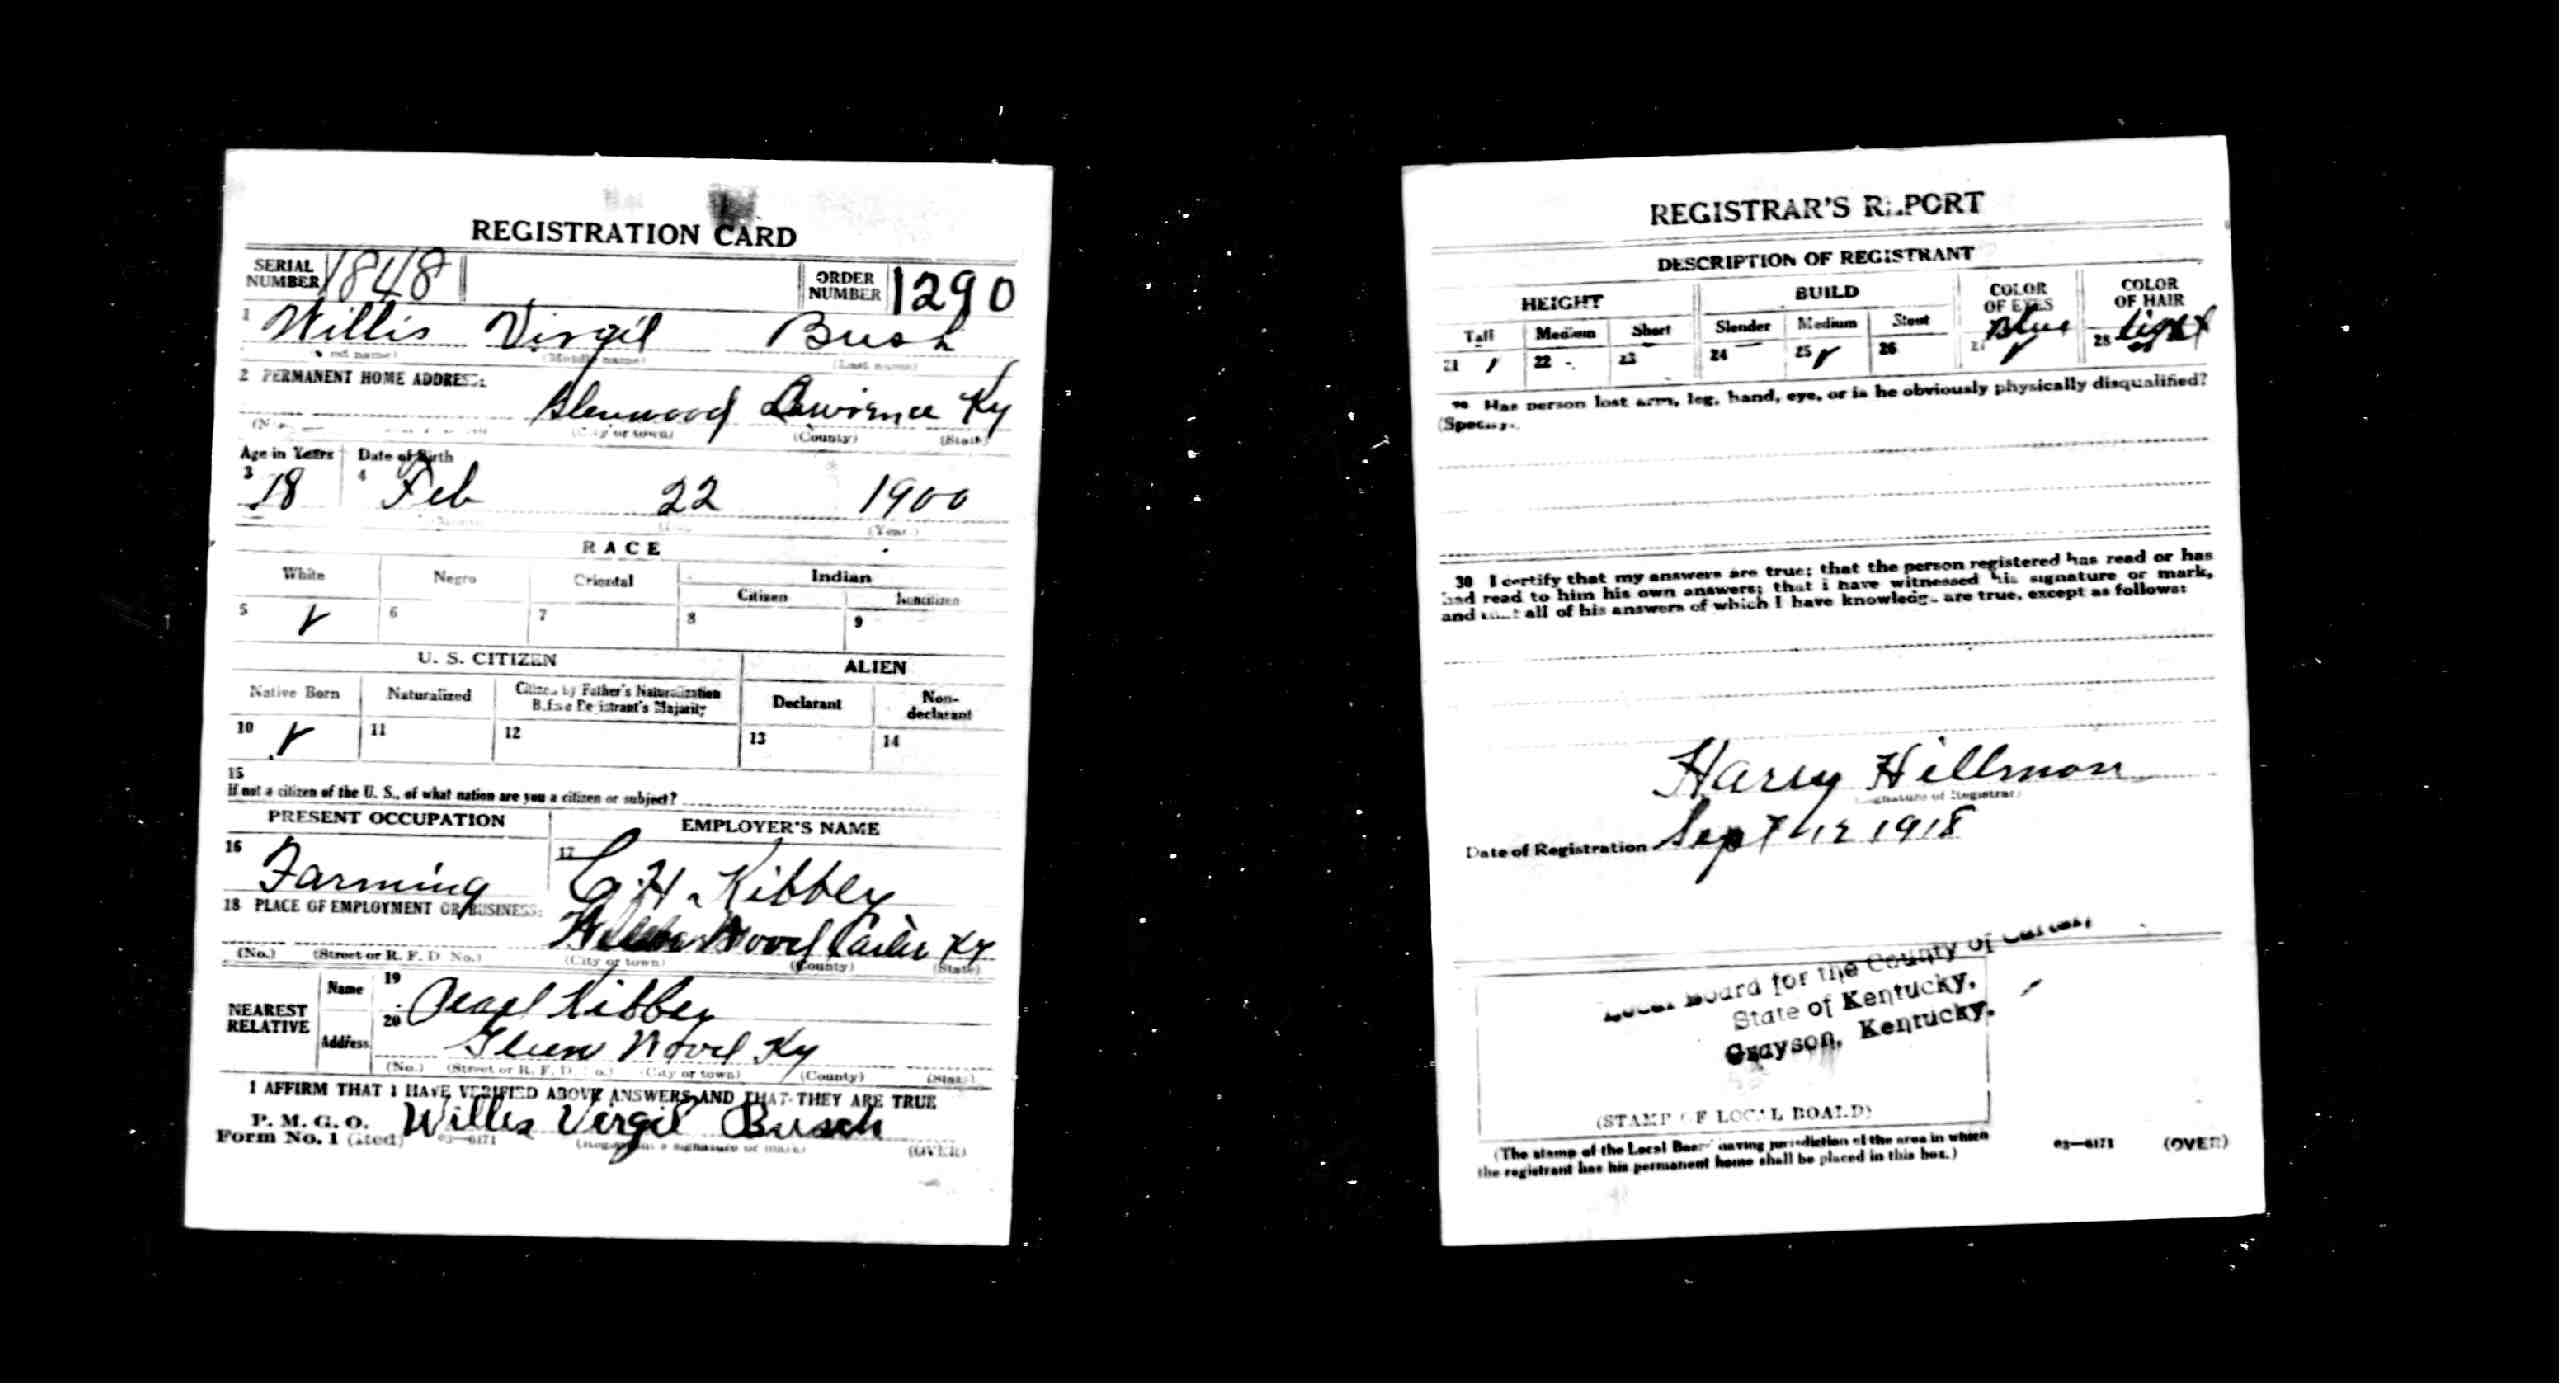 REGISTRATION CARD
SERIAL NUMBER 1848 ORDER NUMBER 1290
1 Willis Virgil Bush
(Middle name) (Last name)
2 PERMANENT HOME ADDRESS:
Glenwood Lawrence Ky
(City or town) (County) (State)
Age in Years Date of Birth
3 18 4 Feb 22 1900
(Year)
RACE
White Negro Oriental Indian
Citizen Noncitizen
5 6 7 8 9
U. S. CITIZEN ALIEN
Native Born Naturalized Citizen by Father's Naturalization Before Registrant's Majority Declarant Non-declarant
10 11 12 13 14
15
If not a citizen of the U. S., of what nation are you a citizen or subject?
PRESENT OCCUPATION EMPLOYER'S NAME
16 Farming 17 C. H. Kibbey
18 PLACE OF EMPLOYMENT OR BUSINESS:
Wood Carter Ky
(No.) (Street or R. F. D. No.) (City or town) (County) (State)
NEAREST RELATIVE
Name 19 Pearl Kibbey
Address 20 Glenn Wood Ky
(No.) (Street or R. F. D. No.) (City or town) (County) (State)
I AFFIRM THAT I HAVE VERIFIED ABOVE ANSWERS AND THAT THEY ARE TRUE
P. M. G. O.
Form No. 1 03—6171 Willis Virgil Busch
(Registrant's signature or mark) (OVER)
REGISTRAR'S REPORT
DESCRIPTION OF REGISTRANT
HEIGHT BUILD COLOR OF EYES COLOR OF HAIR
Tall Medium Short Slender Medium Stout
21 22 23 24 25 26 27 Blue 28 Light
29 Has person lost arm, leg, hand, eye, or is he obviously physically disqualified?
(Specify.)
30 I certify that my answers are true; that the person registered has read or has
had read to him his own answers; that i have witnessed his signature or mark,
and that all of his answers of which I have knowledge are true, except as follows:
Harry Hillmon
(Signature of Registrar)
Date of Registration Sept 12 1918
Local Board for the County of Carter,
State of Kentucky,
Grayson, Kentucky.
(STAMP OF LOCAL BOARD)
(The stamp of the Local Board having jurisdiction of the area in which
the registrant has his permanent home shall be placed in this box.)
03—6171 (OVER)